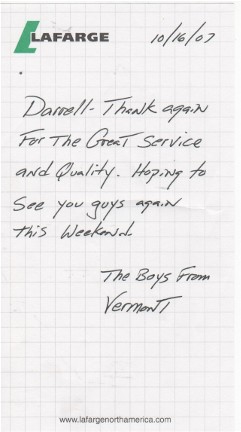 LAFARGE
10/16/07
Darrell - Thank again
For The Great Service
and Quality. Hoping to
See you guys again
this Weekend.
The Boys From
Vermont
www.lafargenorthamerica.com